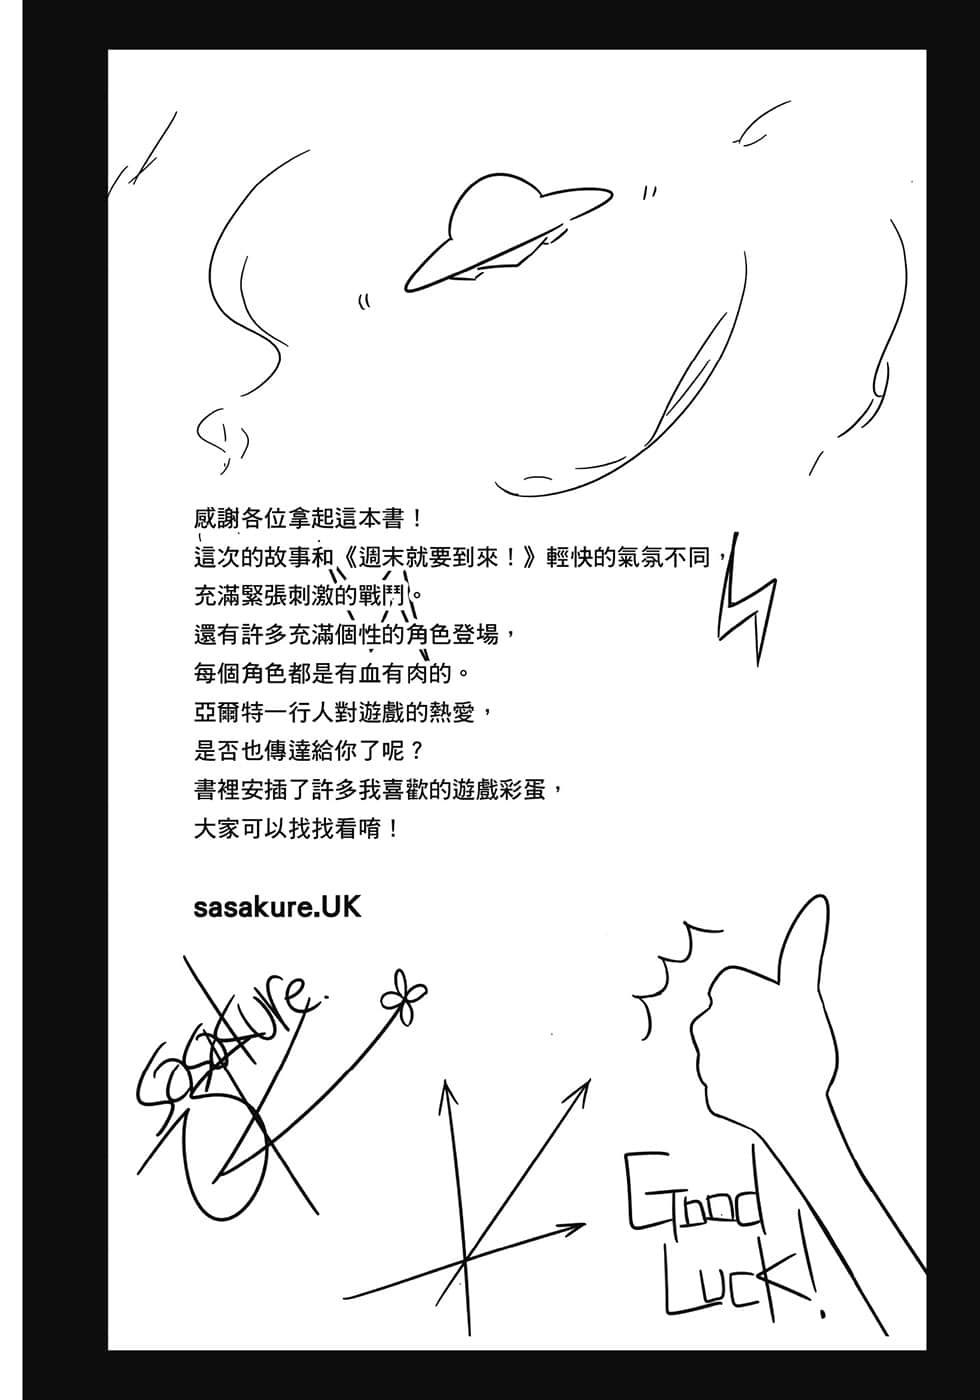 感謝各位拿起這本書！
這次的故事和《週末就要到來！》輕快的氣氛不同，
充滿緊張刺激的戰鬥。
還有許多充滿個性的角色登場，
每個角色都是有血有肉的。
亞爾特一行人對遊戲的熱愛，
是否也傳達給你了呢？
書裡安插了許多我喜歡的遊戲彩蛋，
大家可以找找看唷！
sasakure.UK
sasakure.
Good
Luck!